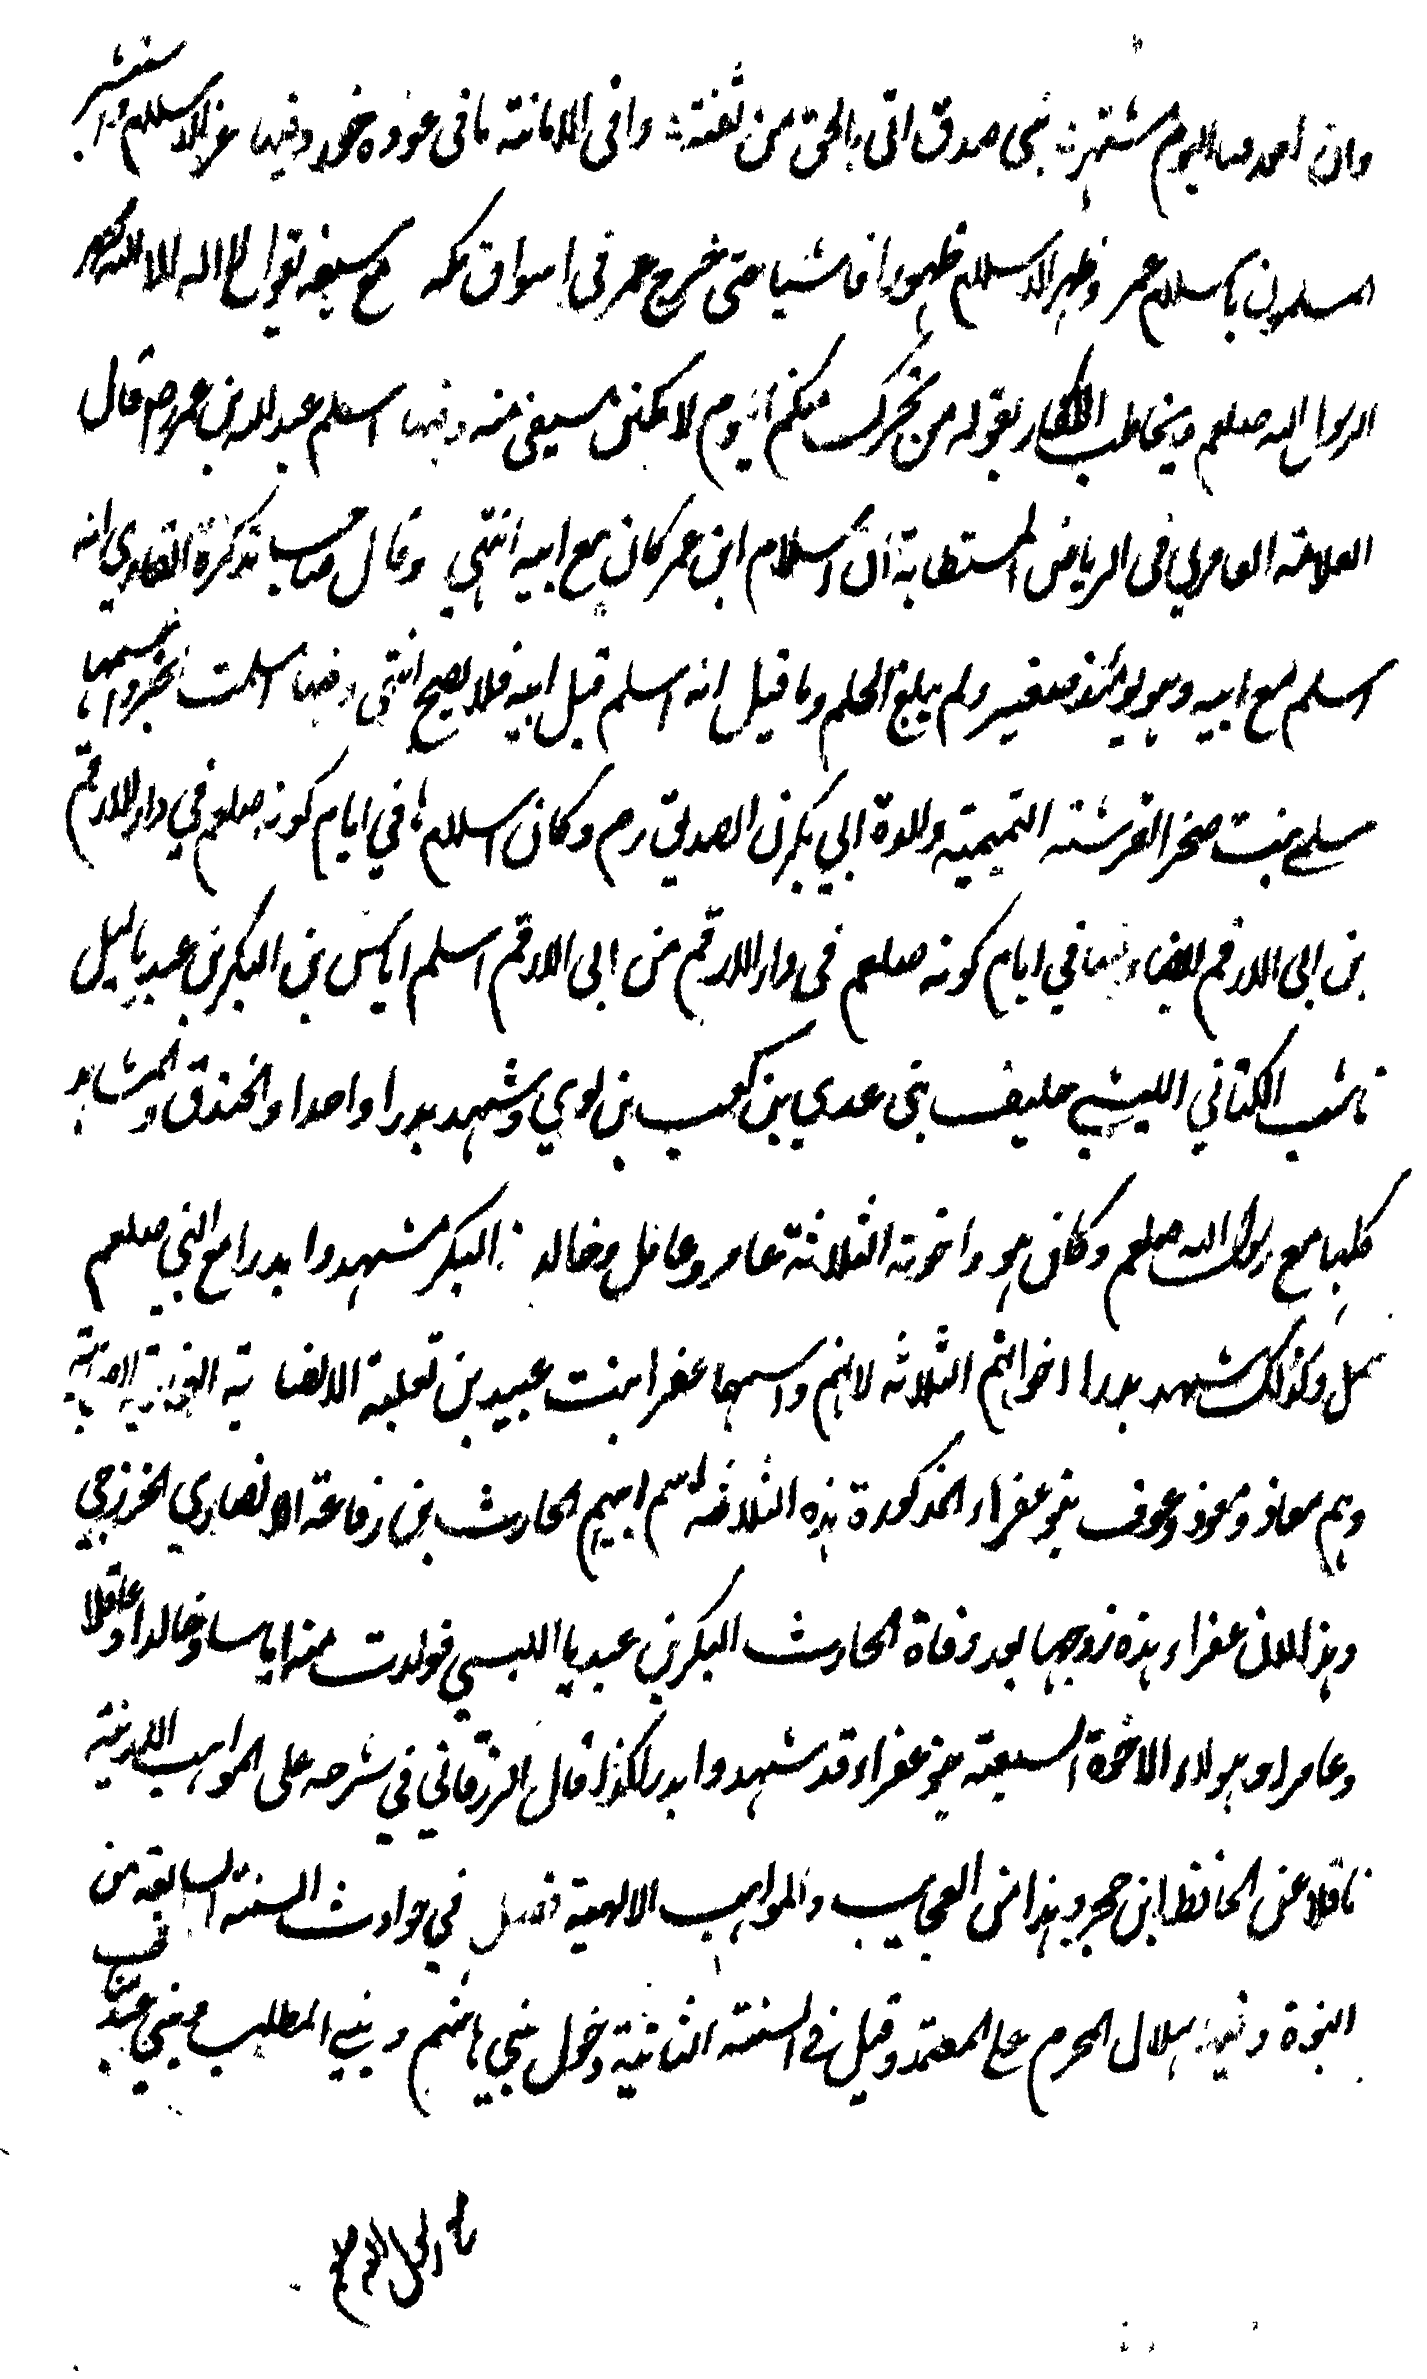 وان احمد فينا اليوم مشتهر ؛ نبي صدق اتى بالحق من ثقة ؛ وافى الامانة ما في عوده خور وفيها عز الاسلام واستبشر
المسلمون باسلام عمر وظهر الاسلام ظهورا فاشيا حتى خرج عمر في اسواق مكة مع سيفه يقول لا اله الا الله محمد
رسول الله صلعم ويخاطب الكفار بقوله من تحرك منكم اليوم لامكنن سيفي منه وفيها اسلم عبد الله بن عمر رض قال
العلامة العامري في الرياض المستطابة ان اسلام ابن عمر كان مع ابيه انتهى وقال صاحب تذكرة القاري انه
اسلم مع ابيه وهو يومئذ صغير ولم يبلغ الحلم وما قيل انه اسلم قبل ابيه فلا يصح انتهى وفيها اسلمت ام الخير واسمها
سلمى بنت صخر القرشية التيمية والدة ابي بكرن الصديق رض وكان اسلامها في ايام كونه صلعم في دار الارقم
بن ابي الارقم ايضا وفيها في ايام كونه صلعم في دار الارقم من ابي الارقم اسلم اياس بن البكر بن عبد ياليل
ناشب الكناني الليثي حليف بني عدي بن كعب بن لوي وشهد بدرا واحدا والخندق والمشاهد
كلها مع رسول الله صلعم وكان هو واخوته الثلاثة عامر وعاقل وخالد بن البكر شهدوا بدرا مع النبي صلعم
وكذلك شهد بدرا اخوانهم الثلاثة لامهم واسمها عفرا بنت عبيد بن ثعلبة الانصارية
وهم معاذ ومعوذ وعوف بنو عفراء المذكورة هذه الثلاثة اسم ابيهم الحارث بن رفاعة الانصاري الخزرجي
وهذا لان عفراء هذه زوجها بعد وفاة الحارث البكر بن عبد يا الليسي فولدت منه اياسا وخالدا وعاقلا
وعامرا وهولاء الاخوة السبعة بنو عفراء قد شهدوا بدرا كذا قال الزرقاني في شرحه على المواهب اللدنية
ناقلا عن الحافظ ابن حجر وهذا من العجايب والمواهب الالهية فصل في حوادث السنة السابعة من
النبوة وفيها هلال المحرم على المعتمد وقيل في السنة الثانية دخول بني هاشم وبني المطلب بني عبد مناف